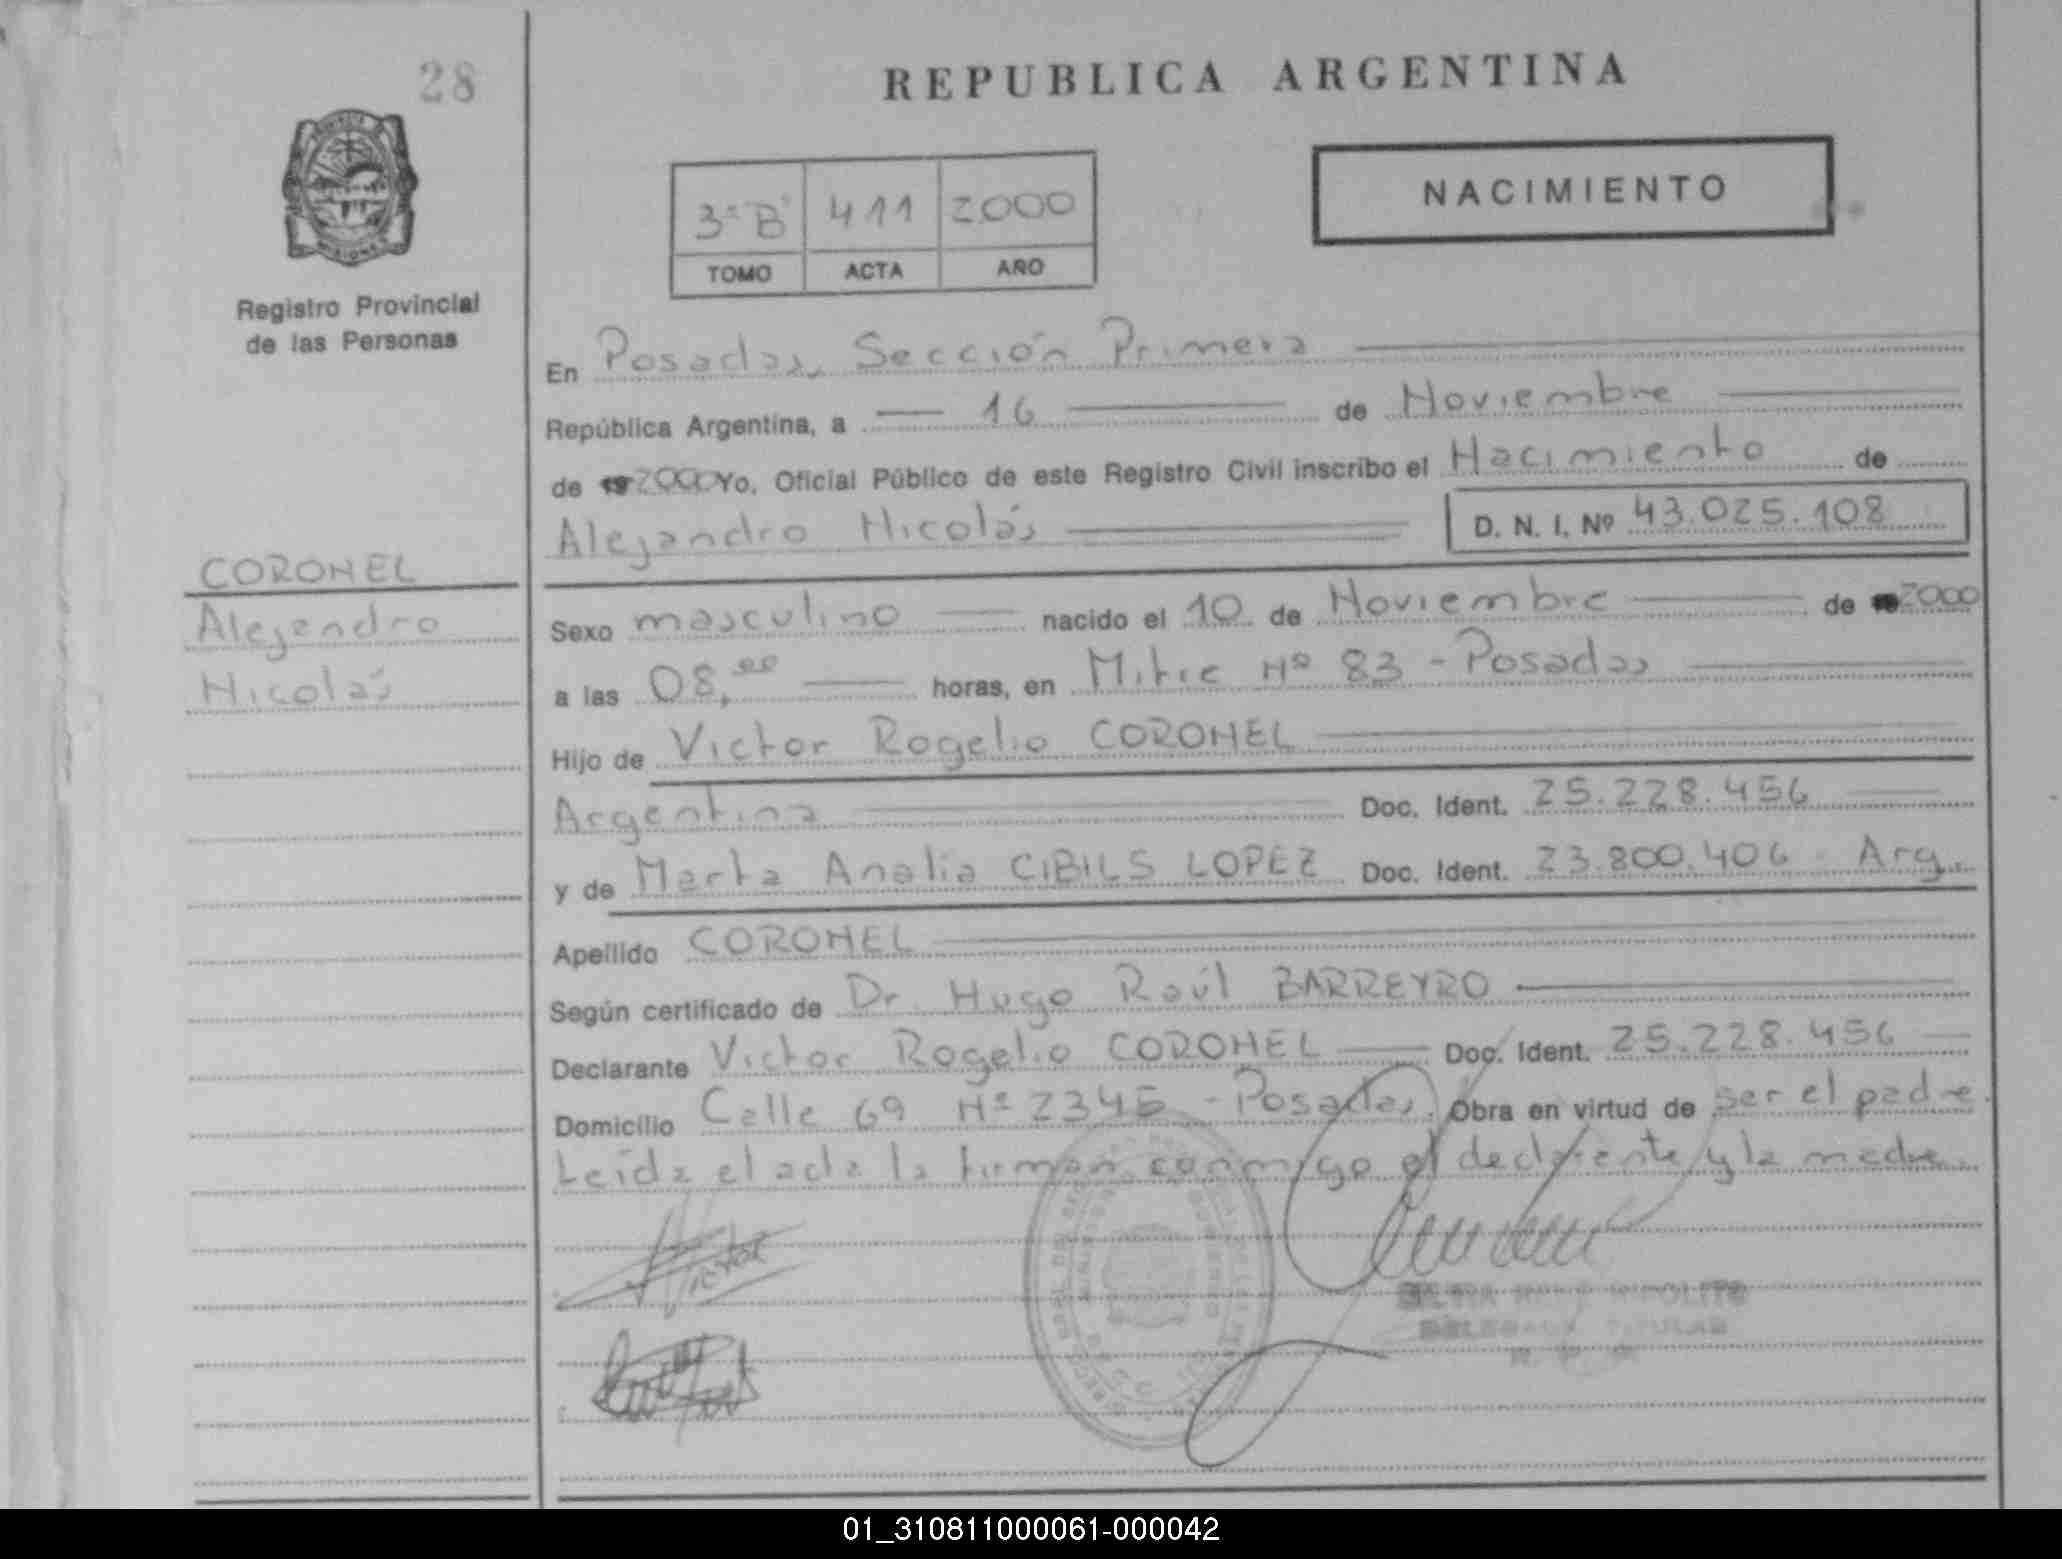 28
REPUBLICA ARGENTINA
NACIMIENTO
3º B 411 2000
TOMO ACTA AÑO
Registro Provincial
de las Personas
En Posadas, Sección Primera
República Argentina, a 16 de Noviembre
de 2000 Yo, Oficial Público de este Registro Civil inscribo el Nacimiento de
Alejandro Nicolás D. N. I. Nº 43.025.108
CORONEL
Alejandro
Nicolás
Sexo masculino nacido el 10 de Noviembre de 2000
a las 08,00 horas, en Mitre Nº 83 - Posadas
Hijo de Victor Rogelio CORONEL
Argentina Doc. Ident. 25.228.456
y de Marta Analía CIBILS LOPEZ Doc. Ident. 23.800.406 - Arg.
Apellido CORONEL
Según certificado de Dr. Hugo Raúl BARREYRO
Declarante Victor Rogelio CORONEL Doc. Ident. 25.228.456
Domicilio Calle 69 Nº 2345 - Posadas. Obra en virtud de ser el padre.
Leída el acta la firman conmigo el declarante y la madre.
01_310811000061-000042